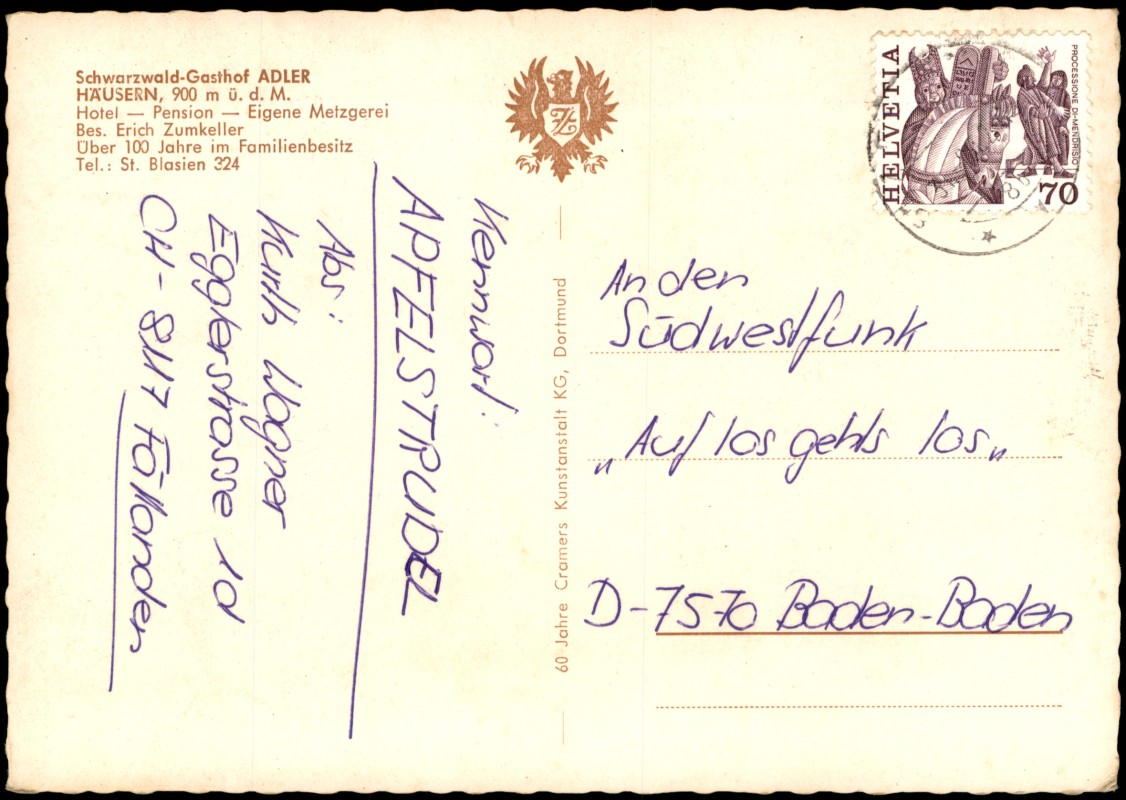 Schwarzwald-Gasthof ADLER
HÄUSERN, 900 m ü. d. M.
Hotel — Pension — Eigene Metzgerei
Bes. Erich Zumkeller
Über 100 Jahre im Familienbesitz
Tel.: St. Blasien 324
Kennwort:
APFELSTRUDEL
Abs:
Kurth Wagner
Egglerstrasse 1d
CH-8117 Fällanden
60 Jahre Cramers Kunstanstalt KG, Dortmund
HELVETIA
PROCESSIONE DI MENDRISIO
70
An den
Südwestfunk
„Auf los gehts los„
D-7570 Baden-Baden